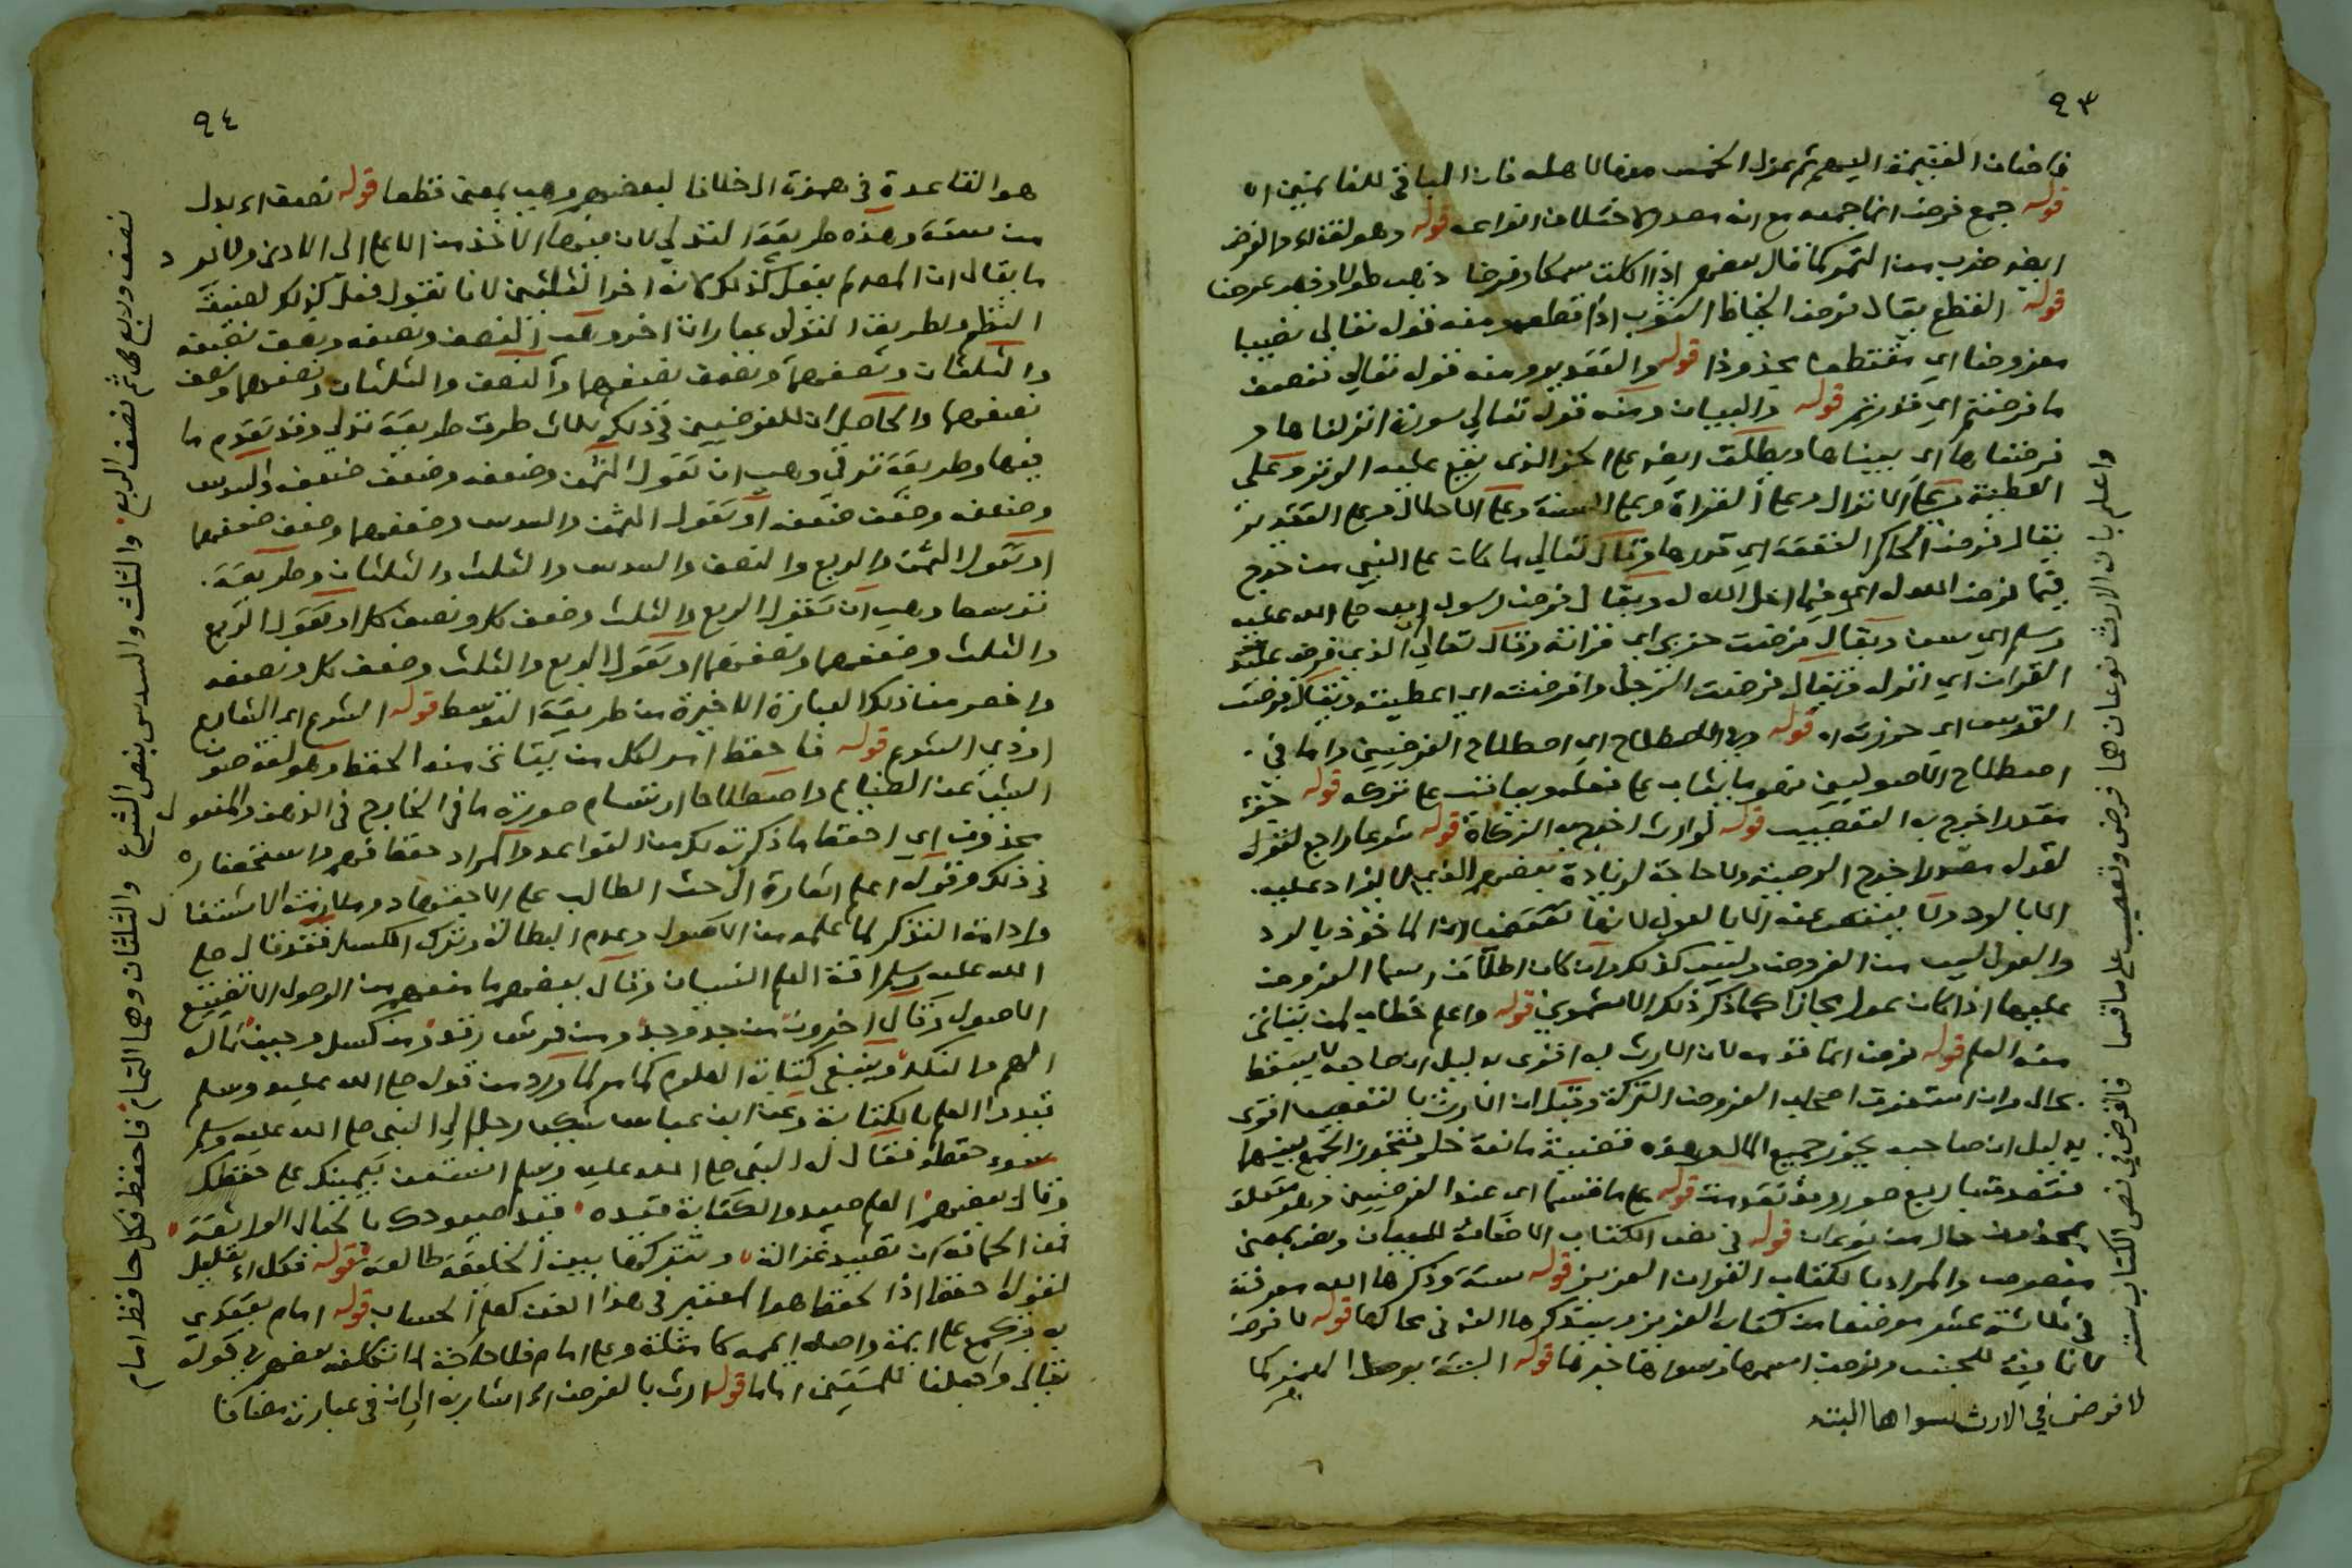 ٩٣
قوله جمع فرض انما جمعه مع انه مصدر لاختلاف انواعه قوله وهو لغة
ايضا ضرب من التمر كما قال بعضهم اذا اكلت سمكا وفرضا ذهبت طولا وذهبت عرضا
قوله القطع يقال فرض الخياط الثوب اذا قطعه ومنه قوله تعالى نصيبا
مفروضا اي مقتطعا محدودا قوله والتقدير ومنه قوله تعالى فنصف
ما فرضتم اي قدرتم قوله والبيان ومنه قوله تعالى سورة انزلناها و
فرضناها اي بيناها ويطلق ايضا على الحز الذي يقع عليه الوتر وعلى
العطية وعلى الانزال وعلى القراة وعلى السنة وعلى الاحلال وعلى التقدير
يقال فرض الحاكم النفقة اي قدرها وقال تعالى ما كان على النبي من حرج
فيما فرض الله له اي فيما احل الله له ويقال فرض رسول الله صلى الله عليه
وسلم اي سن ويقال فرضت حزبي اي قراته وقال تعالى ان الذي فرض عليك
القران اي انزله ويقال فرضت الرجل وافرضته اي اعطيته ويقال فرضت
القوس اي حززته قوله وفي الاصطلاح اي اصطلاح الفرضيين واما في
اصطلاح الاصوليين فهو ما يثاب على فعله ويعاقب على تركه قوله
مقدر اخرج به التعصيب قوله لوارث اخرج به الزكاة قوله شرعا راجع لقوله
لقوله مقدر اخرج الوصية ولا حاجة لزيادة بعضهم الذي لا يزاد عليه
الا بالرد ولا ينقص عنه الا بالعول
والعول ليس من الفروض وليس كذلك وان كان اطلاق اسم الفروض
عليهما اذا كان عول مجازا كما ذكر ذلك الاشموني قوله واعلم خطاب لمن يتاتى
منه العلم قوله فرض انما قدمه لان الارث به اقوى بدليل ان صاحبه لا يسقط
بحال وان استغرقت اصحاب الفروض التركة وقيل ان الارث بالتعصيب اقوى
بدليل ان صاحبه يحوز جميع المال وهذه قضية مانعة خلو فتجوز الجمع بينهما
فتصدق باربع صور وقد تقدمت قوله على ما قسما اي عند الفرضيين وهو متعلق
بمحذوف حال من نوعان قوله في نص الكتاب الاضافة للبيان ونص بمعنى
منصوص والمراد بالكتاب القران العزيز قوله ستة وذكرها الله معرفة
في ثلاثة عشر موضعا من كتابه العزيز وستذكرها الناظم في محالها قوله لا فرض
لا نافية للجنس وفرض اسمها وسواها خبرها قوله البتة بوصل الهمزة كما
لا فرض في الارث سواها البته
واعلم بان الارث نوعان هما فرض وتعصيب على ما قسما فالفرض في نص الكتاب سته
٩٤
هو القاعدة في همزة الوصل خلافا لبعضهم وهي بمعنى قطعا قوله نصف اي بدل
من ستة وهذه طريقة التدلي لان فيها الاخذ من الاعلى الى الادنى ولا يرد
ما يقال ان المصنف لم يفعل كذلك لانه اخر الثلثين لانا نقول فعل كذلك لضيق
النظم ولطريق التدلي عبارات اخر وهي النصف ونصفه ونصف نصفه
والثلثان ونصفهما ونصف نصفهما والنصف والثلثان ونصفهما ونصف
نصفهما والحاصل ان للفرضيين في ذلك ثلاث طرق طريقة تدلي وقد تقدم ما
فيها وطريقة ترقي وهي ان تقول الثمن وضعفه وضعف ضعفه والسدس
وضعفه وضعف ضعفه او تقول الثمن والسدس وضعفهما وضعف ضعفهما
او تقول الثمن والربع والنصف والسدس والثلث والثلثان وطريقة
توسط وهي ان تقول الربع والثلث وضعف كل ونصف كل او تقول الربع
والثلث وضعفهما ونصفهما او تقول الربع والثلث وضعف كل ونصفه
واخصر من ذلك العبارة الاخيرة من طريقة التوسط قوله الشرع اي الشارع
او ذي الشرع قوله فاحفظ امر لكل من يتاتى منه الحفظ وهو لغة صون
الشيء عن الضياع واصطلاحا ارتسام صورة ما في الخارج في الذهن والمفعول
محذوف اي احفظ ما ذكرته لك من القواعد والمراد حفظا فهم واستحضاره
في ذلك وقوله اعلم اشارة الى حث الطالب على الاجتهاد وملازمة الاشتغال
وادامة التذكر لما علمه من الاصول وعدم البطالة وترك الكسل فقد قال صلى
الله عليه وسلم افة العلم النسيان وقال بعضهم ما منعهم من الوصول الا تضييع
الاصول وقال اخرون من جد وجد ومن فرش رقد ومن كسل وجبن مآله
الهم والنكد وينبغي كتابة العلوم كما مر لما ورد من قوله صلى الله عليه وسلم
قيدوا العلم بالكتابة وعن ابن عباس شكى رجل الى النبي صلى الله عليه وسلم
سوء حفظه فقال له النبي صلى الله عليه وسلم استعن بيمينك على حفظك
وقال بعضهم العلم صيد والكتابة قيده قيد صيودك بالحبال الواثقة
فمن الحماقة ان تصيد غزالة وتتركها بين الخليقة طالقة قوله فكل اي تعليل
لقوله احفظ اذ الحفظ هو المعتبر في هذا الفن كعلم الحساب قوله امام يقتدي
به ويجمع على ايمة واصله اممة كامثلة وعلى امام فلا حاجة لما تكلفه بعضهم في قوله
تعالى واجعلنا للمتقين اماما قوله ارث بالفرض اي اشار به الى ان في عبارته مضافا
نصف وربع ثم نصف الربع والثلث والسدس بنص الشرع والثلثان وهما التمام فاحفظ فكل حافظ امام